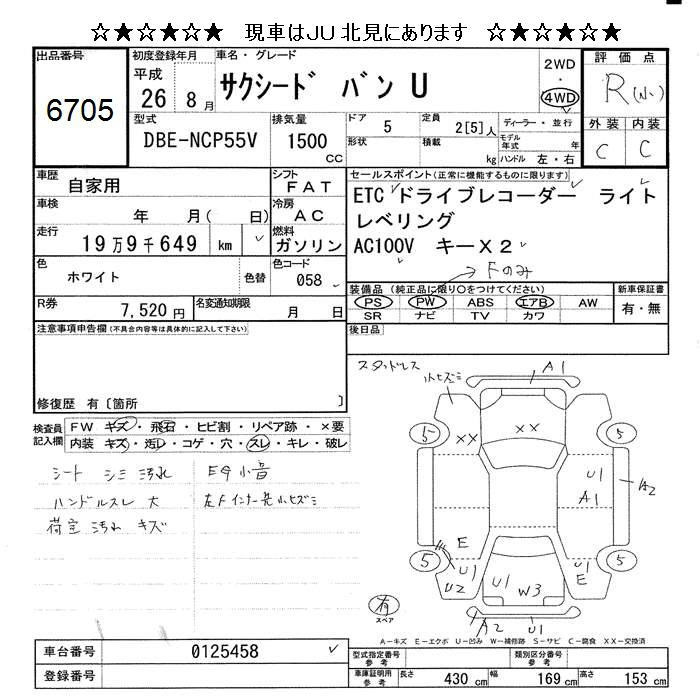 ☆★☆★☆★ 現車はJU北見にあります ☆★☆★☆★
出品番号
6705
初度登録年月
平成
26 8月
車名・グレード
サクシード バン U
2WD
・
4WD
評価点
R(小)
外装 内装
C C
型式
DBE-NCP55V
排気量
1500
CC
ドア
5
形状
定員
2[5]人
積載
kg
ディーラー・並行
モデル
年式 年
ハンドル 左・右
車歴
自家用
シフト
FAT
車検
年 月( 日)
冷房
AC
走行
19万9千649 km
燃料
ガソリン
色
ホワイト
色替
色コード
058
R券
7,520円
名変通知期限
月 日
セールスポイント(正常に機能するものに限ります)
ETC ドライブレコーダー ライト
レベリング
AC100V キーX2
Fのみ
装備品 (純正品に限り○をつけてください)
PS PW ABS エアB AW
SR ナビ TV カワ
新車保証書
有・無
後日品
注意事項申告欄(不具合内容等は具体的に記入して下さい)
修復歴 有〔箇所 〕
検査員
記入欄
FW キズ・飛石・ヒビ割・リペア跡・×要
内装 キズ・汚レ・コゲ・穴・スレ・キレ・破レ
シート シミ 汚れ
Eg小音
ハンドルスレ 大
左Fインナー先小ヒズミ
荷室 汚れ キズ
スタッドレス
小ヒズミ
A1
XX
XX
5
5
U1
A1
A2
E
U1
U2
U1
W3
U1
E
5
5
有
スペア
A2
U1
A-キズ E-エクボ U-凹み W-補修跡 S-サビ C-腐食 XX-交換済
車台番号
0125458
登録番号
型式指定番号
参考
類別区分番号
参考
車庫証明用
参考
長さ 430 cm 幅 169 cm 高さ 153 cm